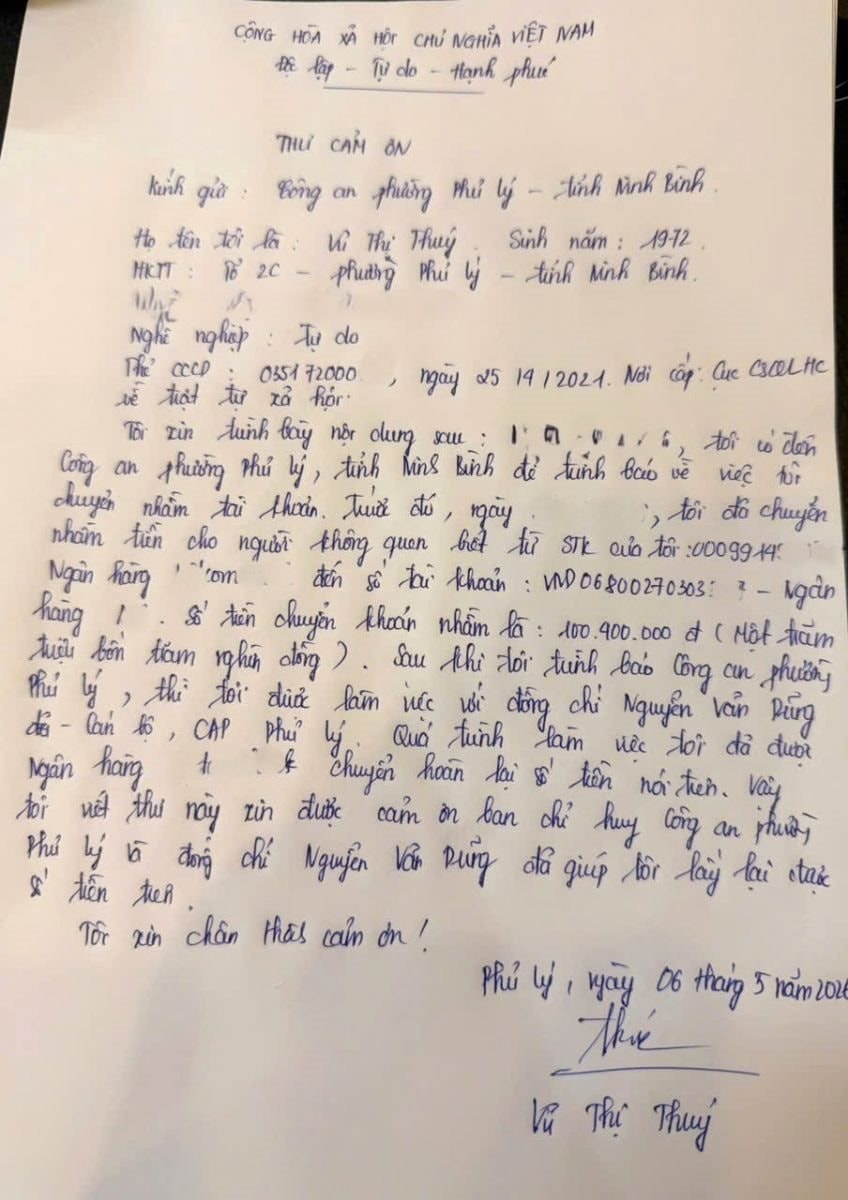 CỘNG HÒA XÃ HỘI CHỦ NGHĨA VIỆT NAM
Độc lập - Tự do - Hạnh phúc
THƯ CẢM ƠN
Kính gửi : Công an phường Phủ Lý - tỉnh Ninh Bình.
Họ tên tôi là : Vũ Thị Thuý . Sinh năm : 1972.
HKTT : Tổ 2C - phường Phủ Lý - tỉnh Ninh Bình.
Nghề nghiệp : Tự do
Thẻ CCCD : 035172000 , ngày 25 /4/2021. Nơi cấp : Cục CSQLHC
về trật tự xã hội.
Tôi xin trình bày nội dung sau : , tôi có đến
Công an phường Phủ Lý, tỉnh Ninh Bình để trình báo về việc tôi
chuyển nhầm tài khoản. Trước đó, ngày , tôi đã chuyển
nhầm tiền cho người không quen biết từ STK của tôi : 0009914
Ngân hàng com đến số tài khoản : VND06800270303 - Ngân
hàng . Số tiền chuyển khoản nhầm là : 100.400.000 đ ( Một trăm
triệu bốn trăm nghìn đồng ) . Sau khi tôi trình báo Công an phường
Phủ Lý, thì tôi được làm việc với đồng chí Nguyễn Văn Dũng
- Cán bộ, CAP Phủ Lý. Quá trình làm việc tôi đã được
Ngân hàng chuyển hoàn lại số tiền nói trên. Vậy
tôi viết thư này xin được cảm ơn ban chỉ huy Công an phường
Phủ Lý và đồng chí Nguyễn Văn Dũng đã giúp tôi lấy lại được
số tiền trên.
Tôi xin chân thành cảm ơn !
Phủ Lý, ngày 06 tháng 5 năm 2026
Vũ Thị Thuý